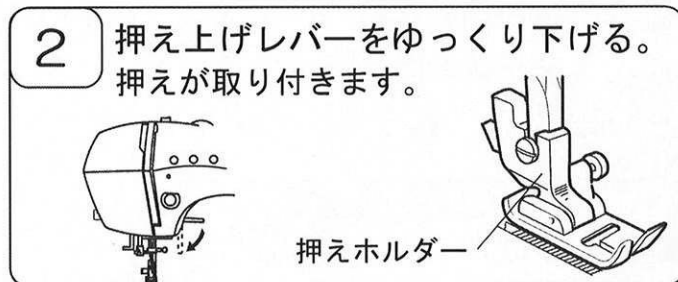 2
押え上げレバーをゆっくり下げる。
押えが取り付きます。
押えホルダー